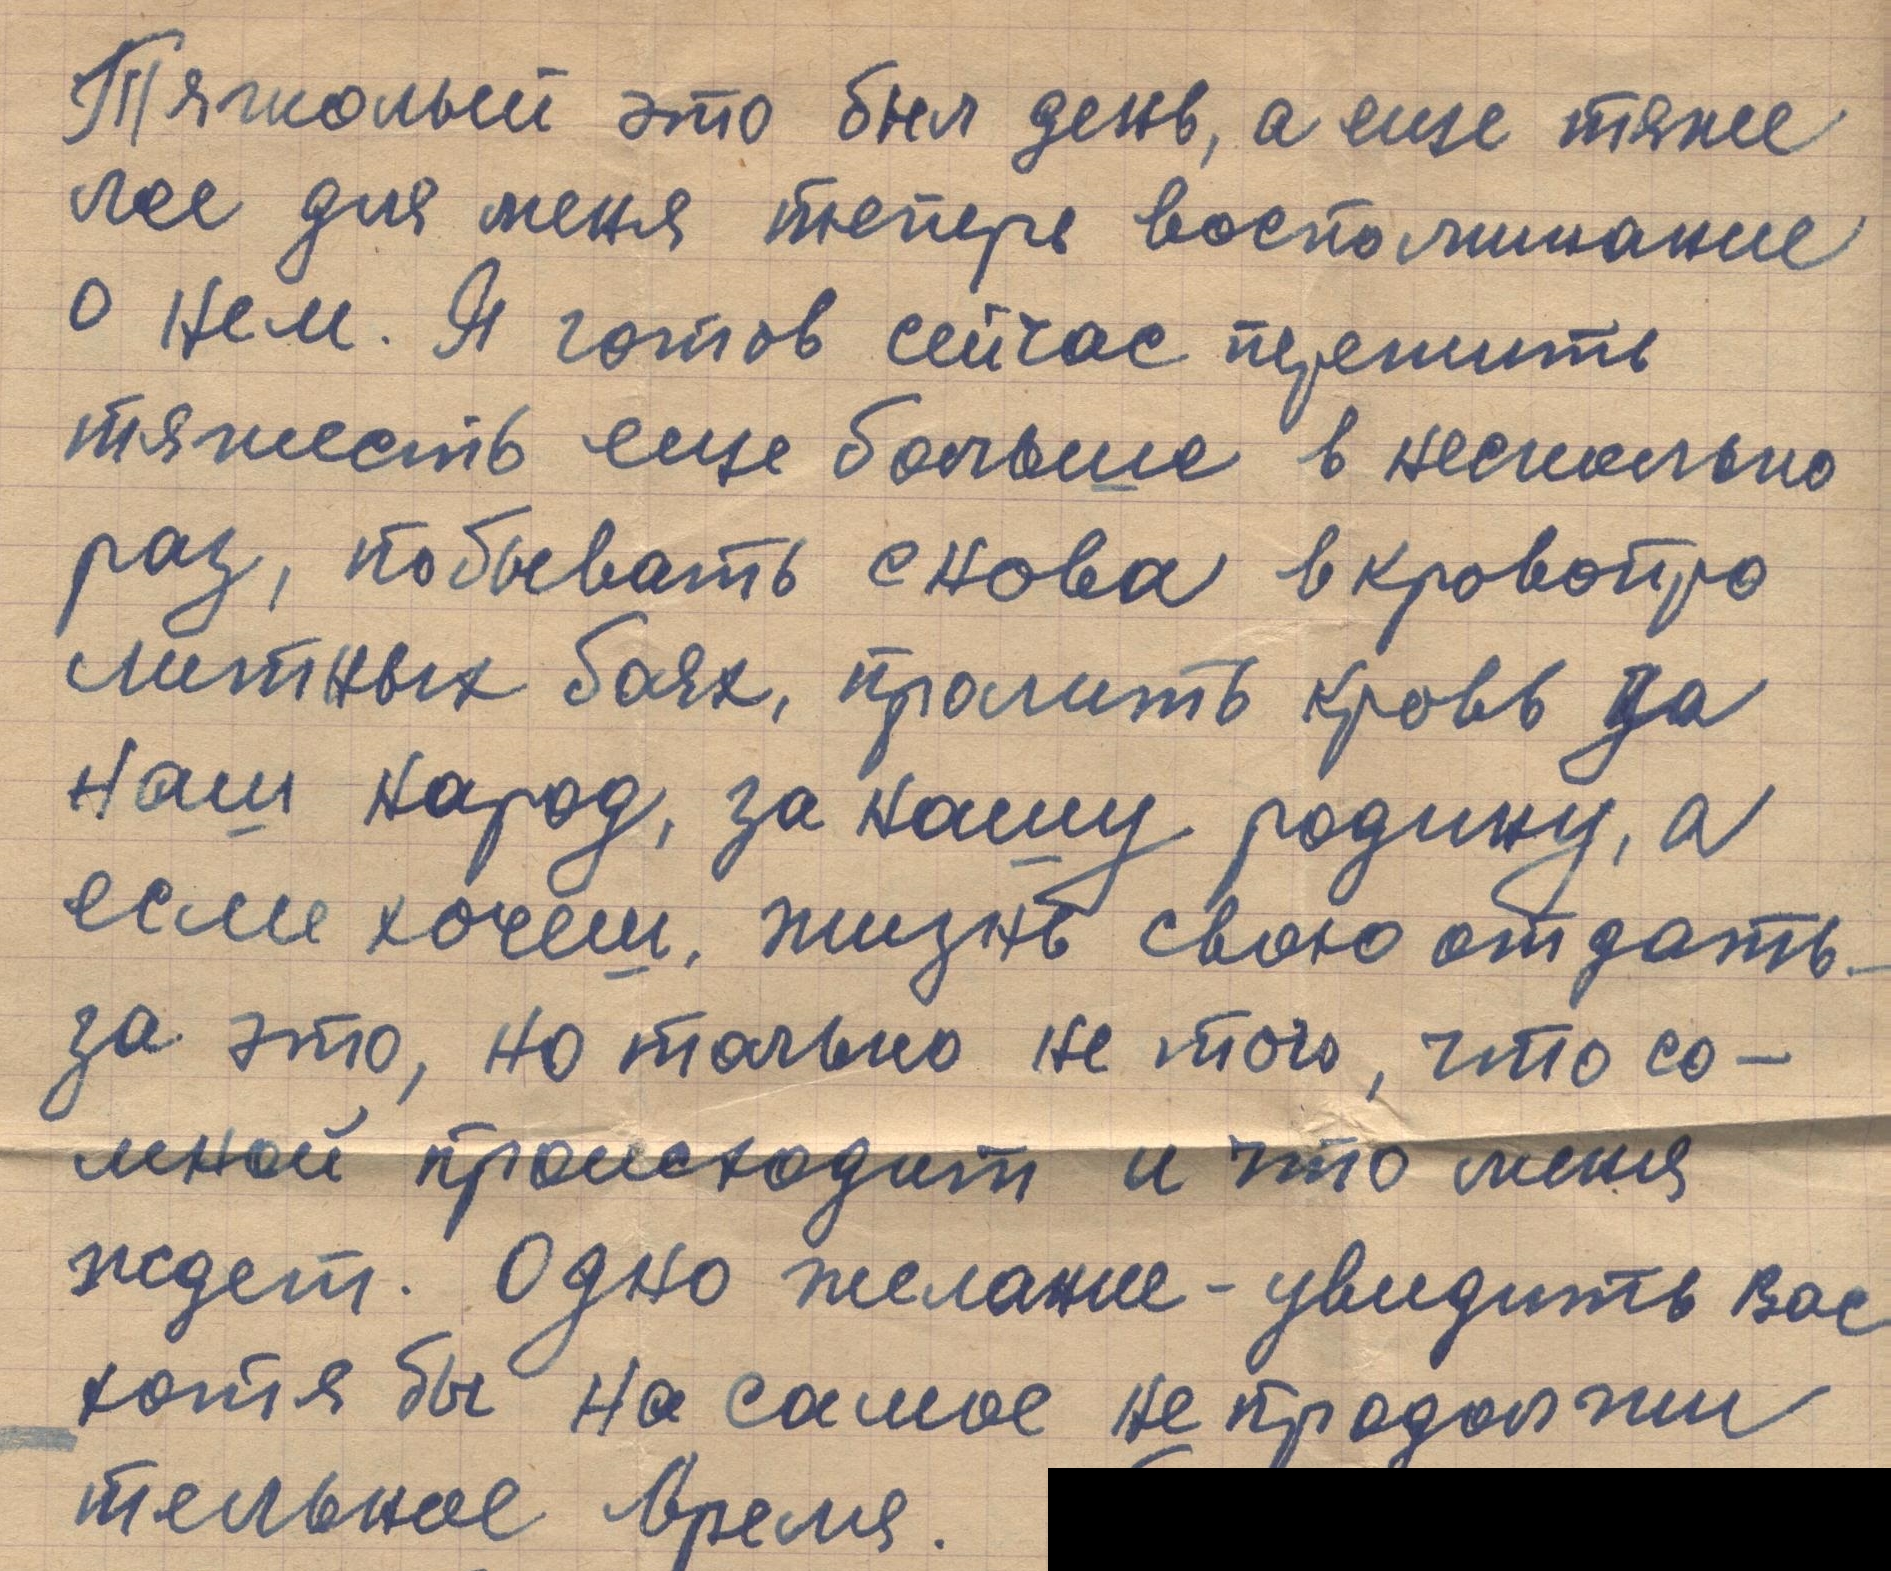 Тяжолый это был день, а еще тяже
лее для меня теперь воспоминание
о нем. Я готов сейчас пережить
тяжесть еще больше в несколько
раз, побывать снова в кровопро
литных боях, пролить кровь за
наш народ, за нашу родину, а
если хочеш, жизнь свою отдать
за это, но только не того, что со-
мной происходит и что меня
ждет. Одно желание - увидить вас
хотя бы на самое не продолжи
тельное время.